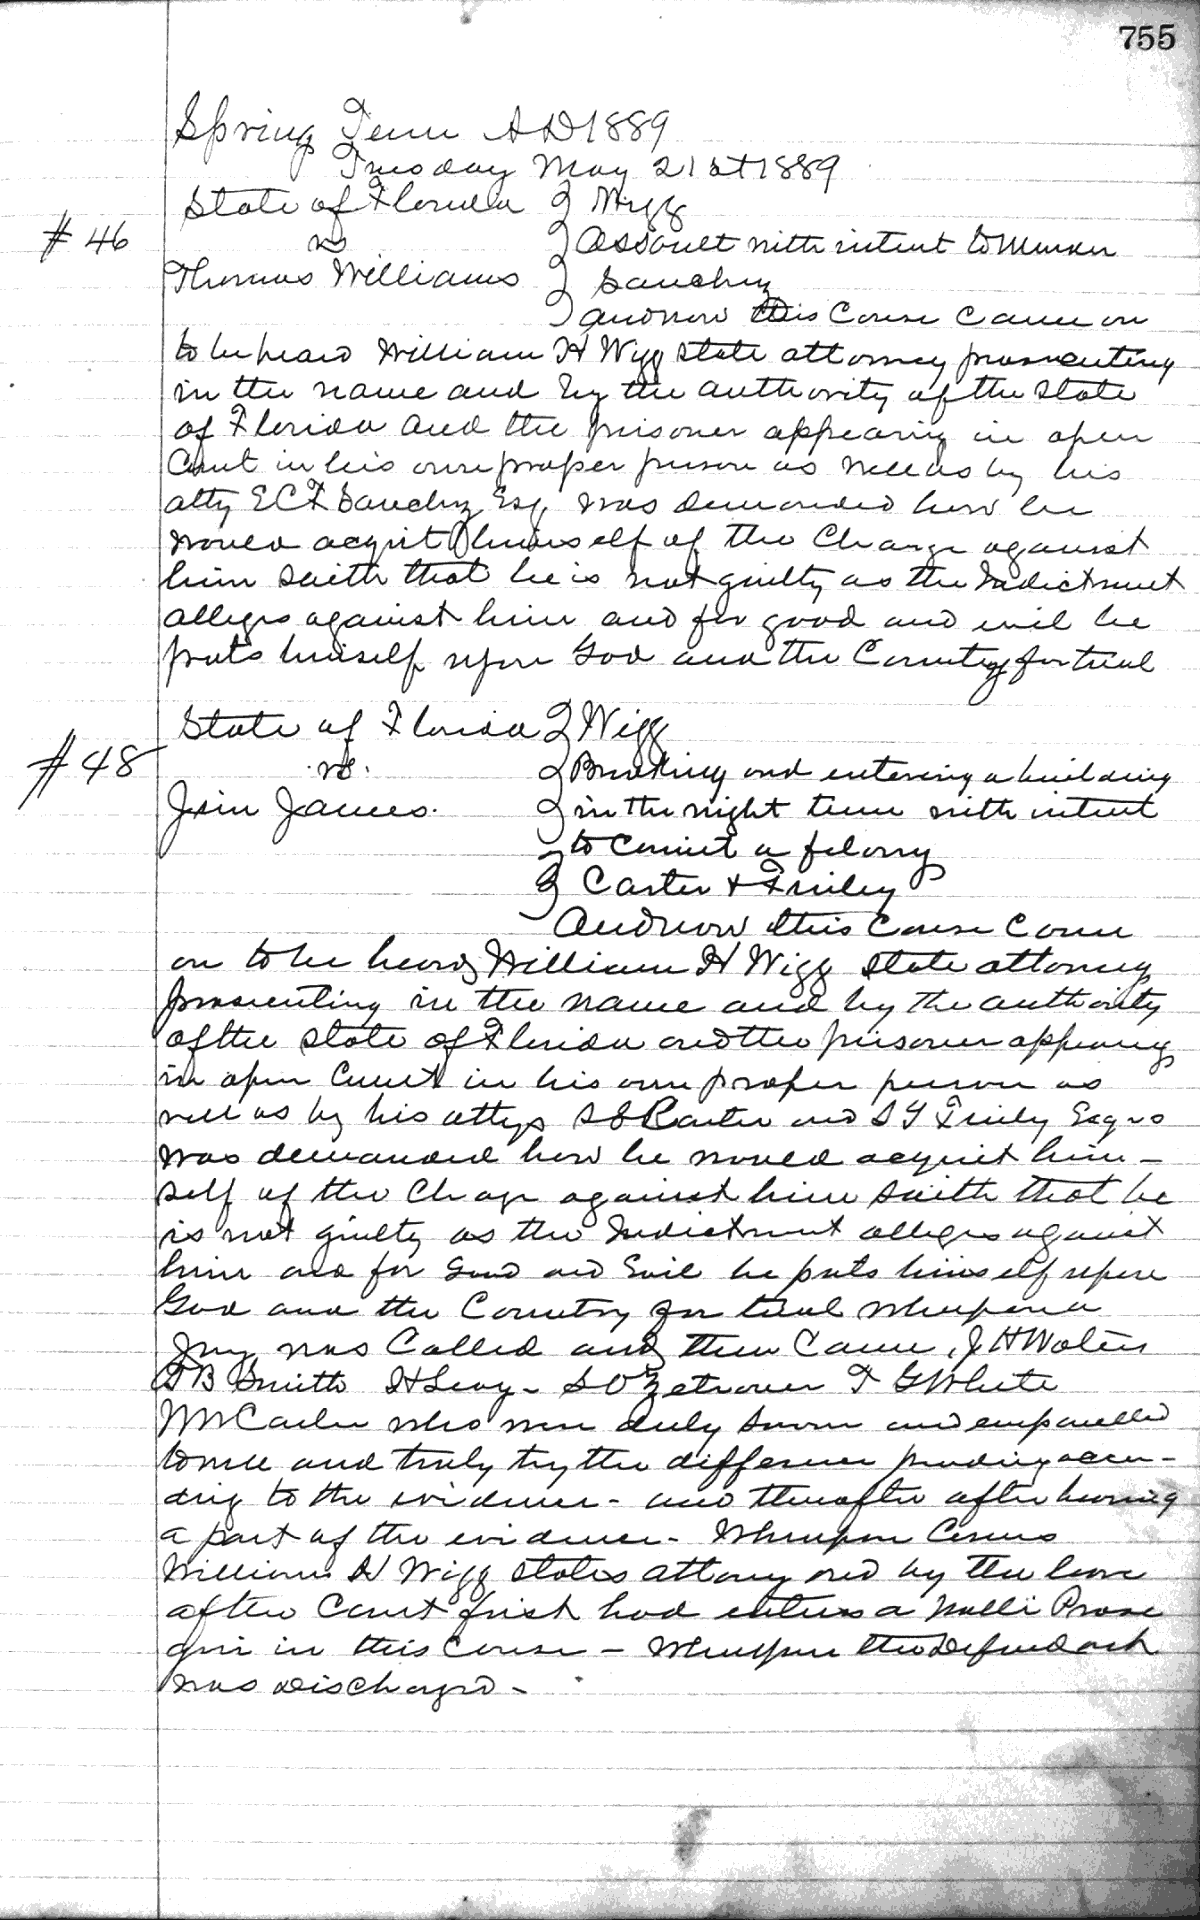 755
Spring Term A D 1889
Tuesday May 21st 1889
State of Florida } Wigg
# 46 vs } Assault with intent to Murder
Thomas Williams } Sanchez
} And now this Cause Came on
to be heard William H Wigg State attorney prosecuting
in the name and by the authority of the State
of Florida and the prisoner appearing in open
Court in his own proper person as well as by his
atty E C F Sanchez Esq was demanded how he
would acquit himself of the Charge against
him saith that he is not guilty as the Indictment
alleges against him and for good and evil he
puts himself upon God and the Country for trial
State of Florida } Wigg
# 48 vs. } Breaking and entering a building
Jim James. } in the night time with intent
} to Comit a felony
} Carter & Finley
And now this Cause Come
on to be heard William H Wigg State attorney
prosecuting in the name and by the authority
of the State of Florida and the prisoner appearing
in open Court in his own proper person as
well as by his attys and Finley Esqrs
was demanded how he would acquit him-
self of the Charge against him saith that he
is not guilty as the Indictment alleges against
him and for Good and Evil he puts himself upon
God and the Country for trial Whereupon a
Jury was Called and then Came, J H Waters
T B Smith H Levy - S O Zetrouer F G White
W M Carter who were duly sworn and empanelled
to well and truly try the difference pending accor-
ding to the evidence - and thereafter after hearing
a part of the evidence - Whereupon Comes
William H Wigg States attorney and by the leave
of the Court first had enters a Nolli Prose
qui in this Cause - Whereupon the Defendant
was discharged -